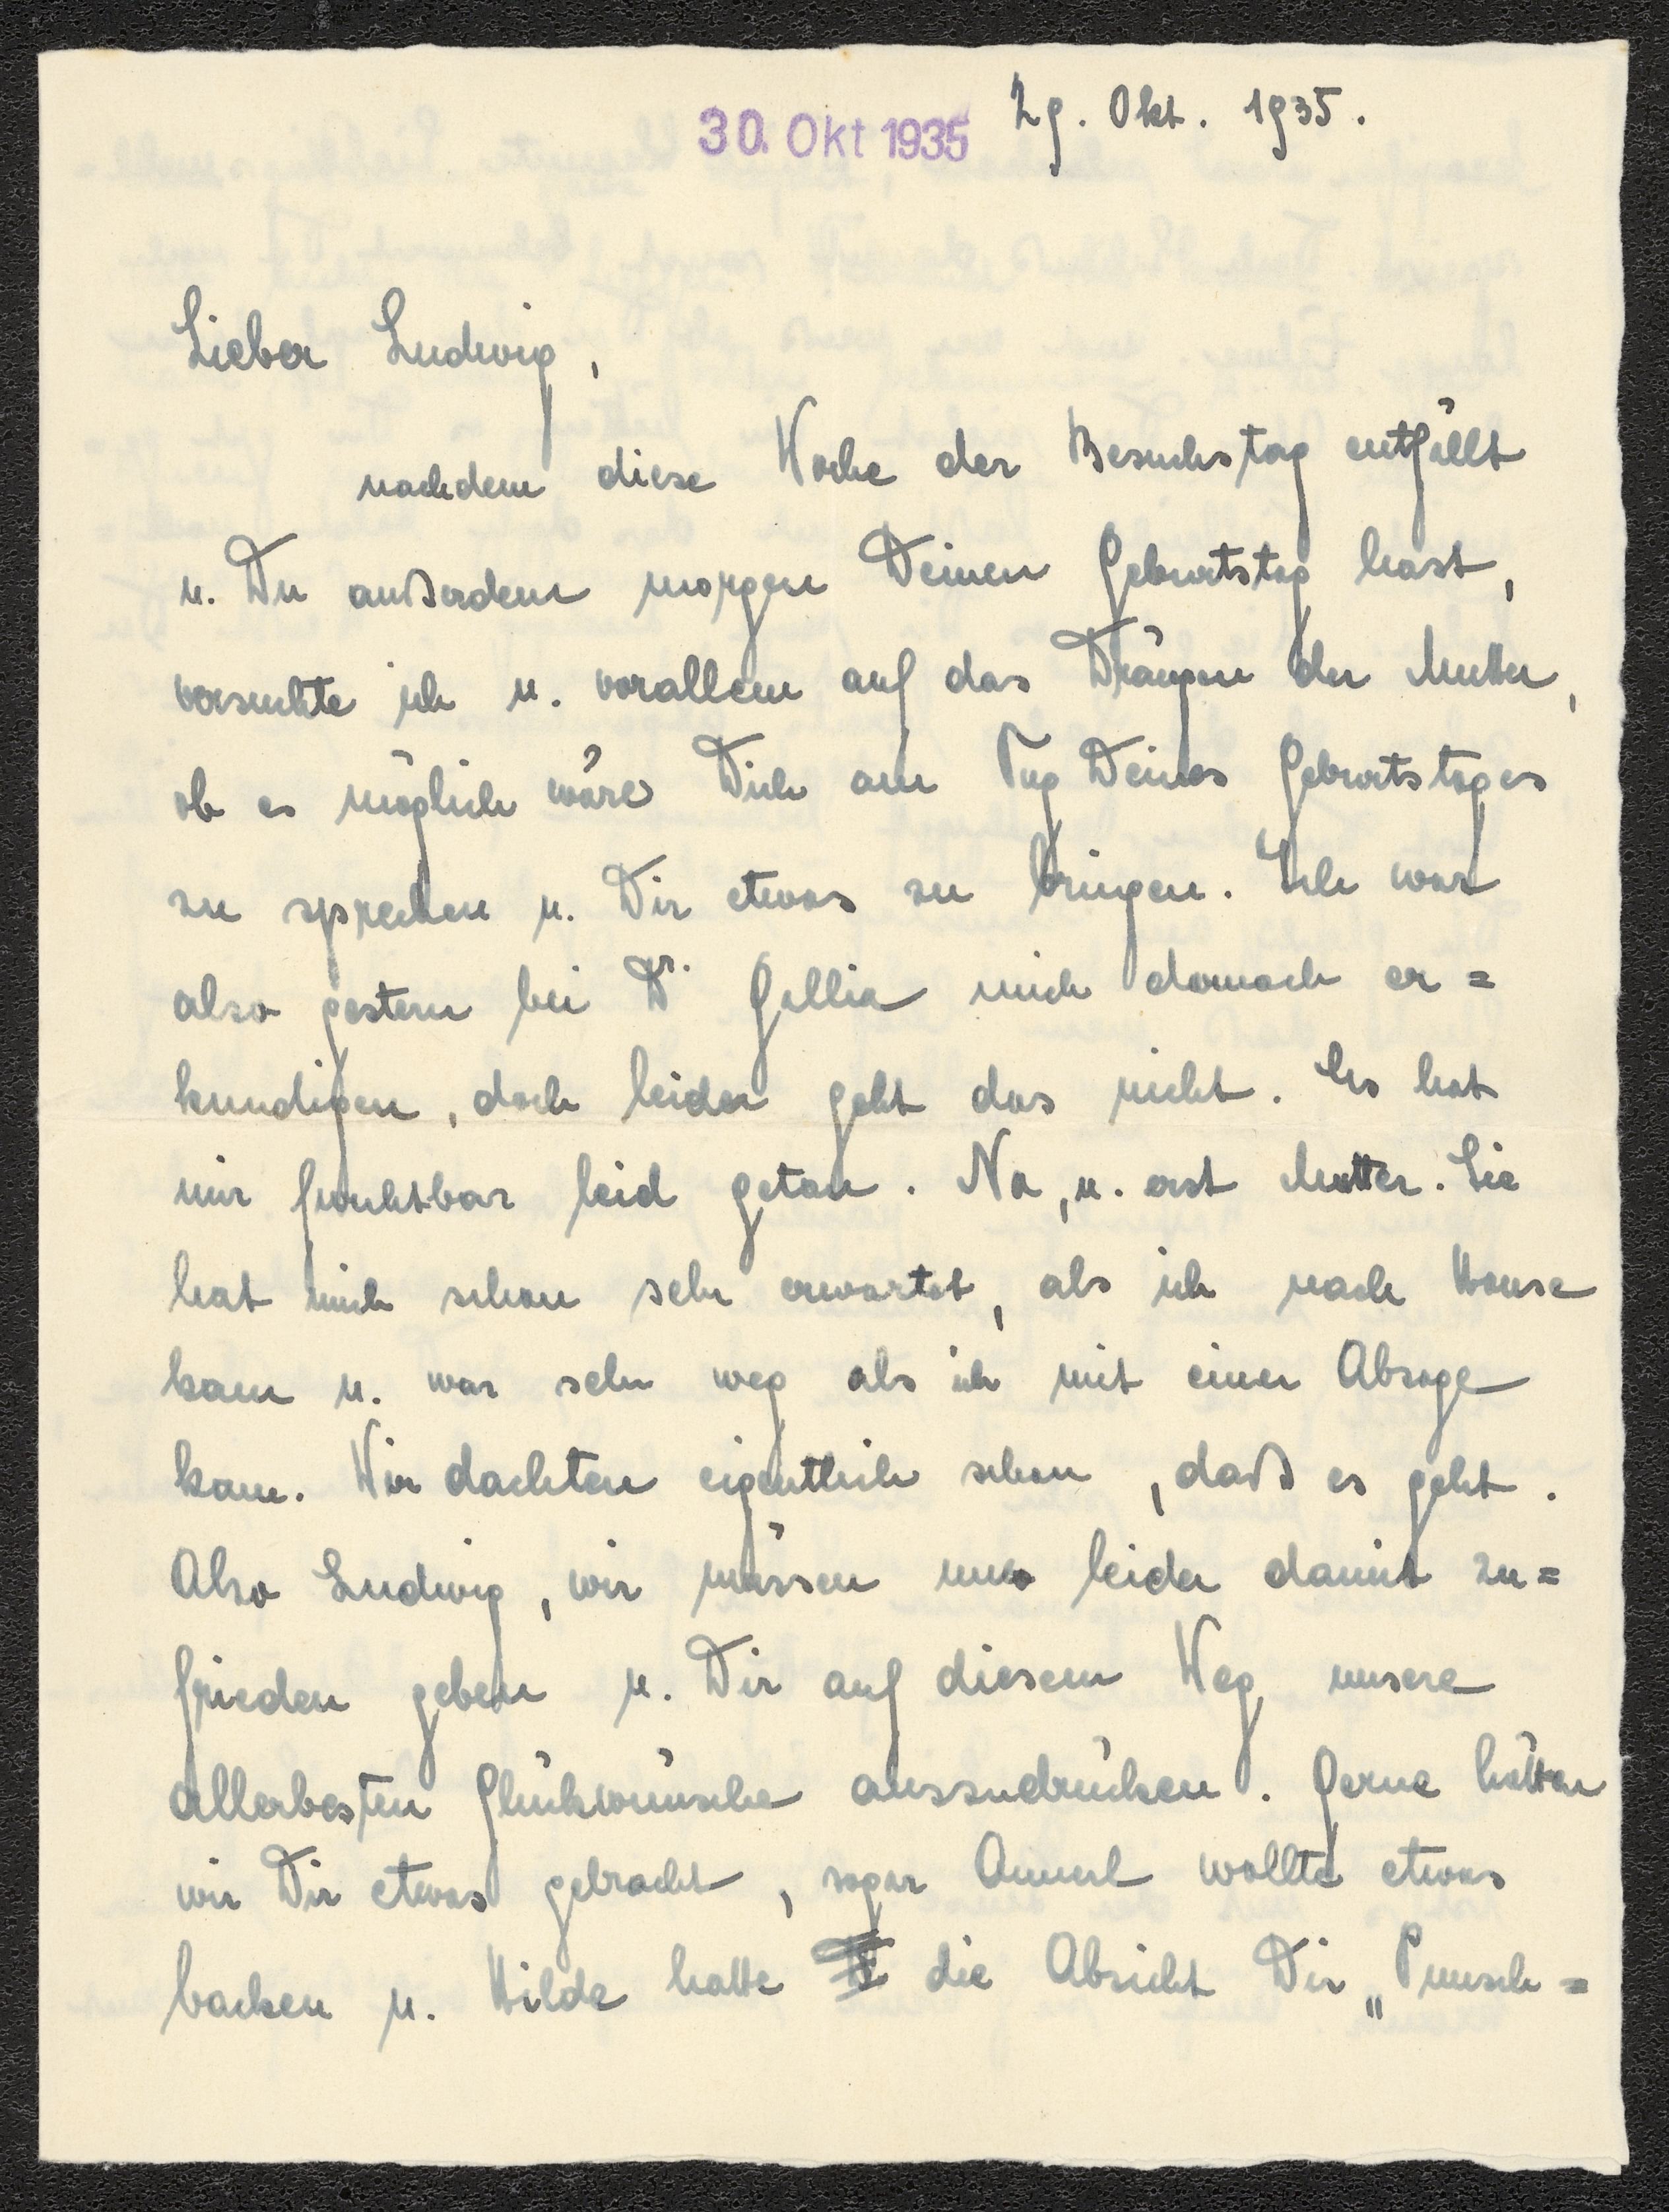 30. Okt 1935
29. Okt. 1935.
Lieber Ludwig,
nachdem diese Woche der Besuchstag entfällt
u. Du außerdem morgen Deinen Geburtstag hast,
versuchte ich u. vorallem auf das Drängen der Mutter,
ob es möglich wäre Dich am Tag Deines Geburtstages
zu sprechen u. Dir etwas zu bringen. Ich war
also gestern bei Dr. Gallia mich darnach er=
kundigen, doch leider geht das nicht. Es hat
mir furchtbar leid getan. Na, u. erst Mutter. Sie
hat mich schon sehr erwartet, als ich nach Hause
kam u. war sehr weg als ich mit einer Absage
kam. Wir dachten eigentlich schon, daß es geht.
Also Ludwig, wir müssen uns leider damit zu=
frieden geben u. Dir auf diesem Weg unsere
allerbesten Glückwünsche auszudrücken. Gerne hätten
wir Dir etwas gebracht, sogar Annerl wollte etwas
backen u. Hilde hatte die Absicht Dir „Punsch=